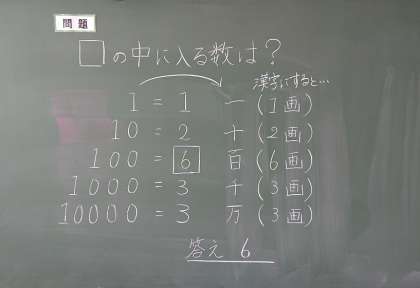 問題
□の中に入る数は?
漢字にすると…
1 = 1 一 (1画)
10 = 2 十 (2画)
100 = 6 百 (6画)
1000 = 3 千 (3画)
10000 = 3 万 (3画)
答え 6